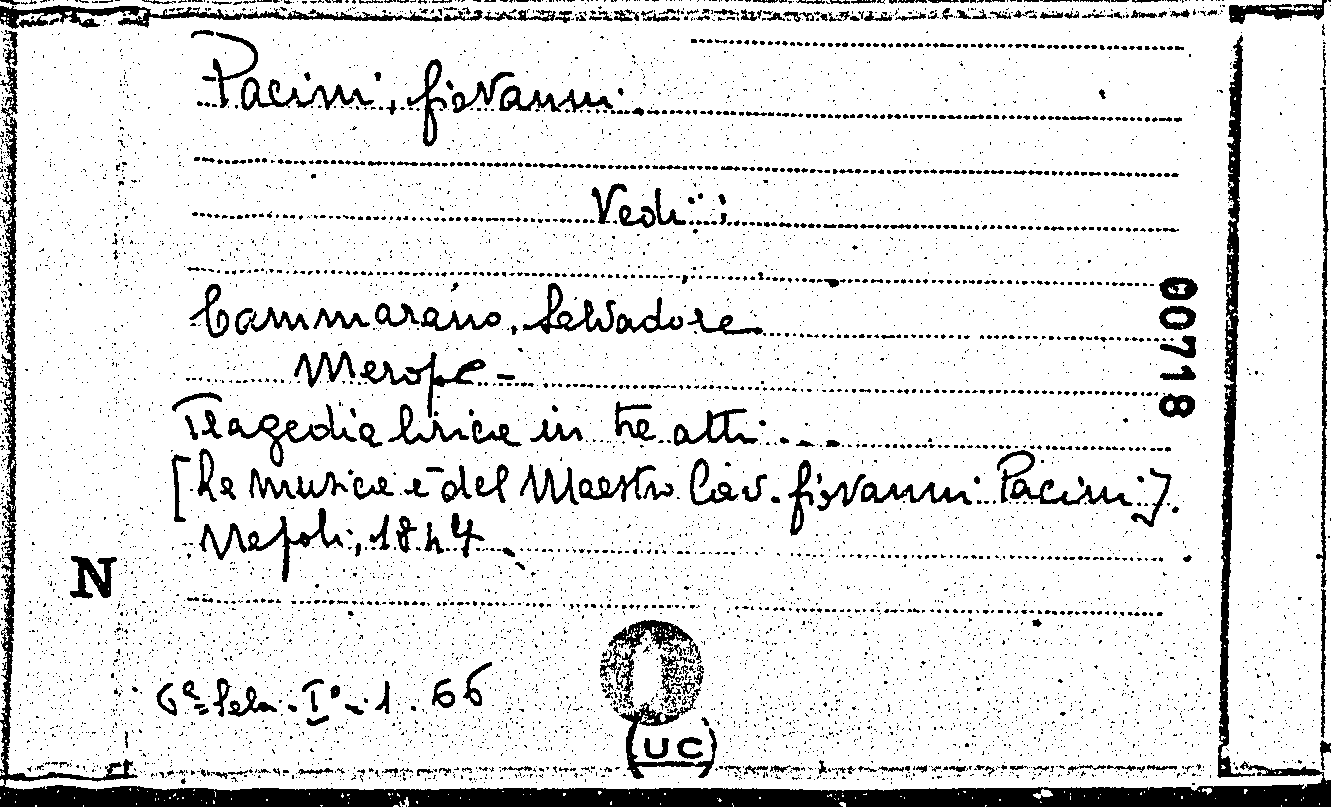 Pacini, Giovanni.
Vedi:
Cammarano, Salvadore
Merope -
Tragedia lirica in tre atti....
[La musica è del Maestro Cav. Giovanni Pacini].
Napoli, 1847.
00718
N
6ª Sala. Iº - 1. 66
(UC)